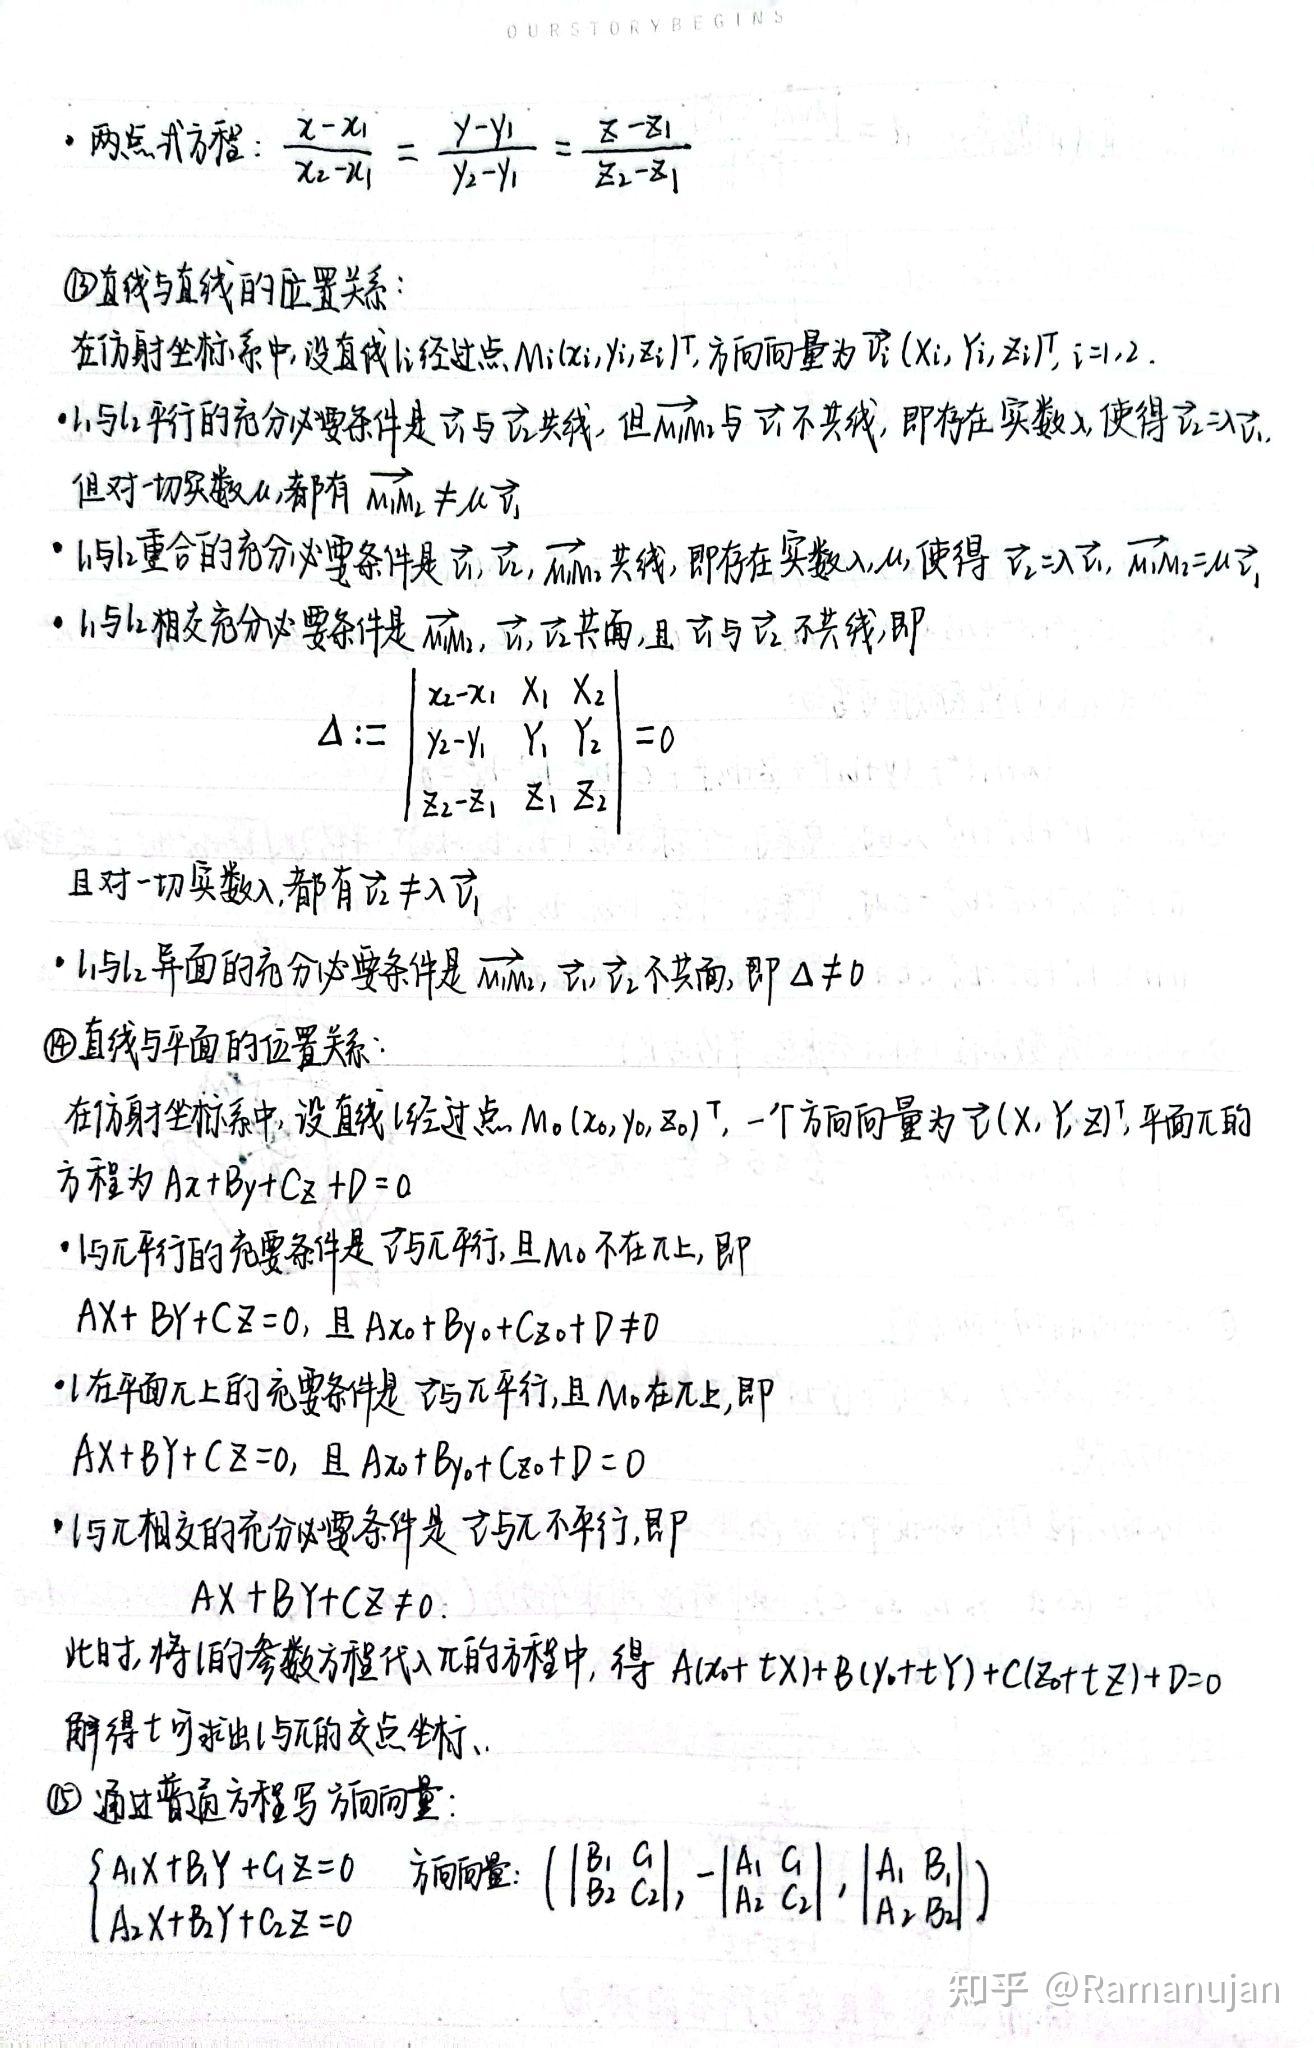 OURSTORYBEGINS
· 两点式方程: (x-x₁)/(x₂-x₁) = (y-y₁)/(y₂-y₁) = (z-z₁)/(z₂-z₁)
⑬直线与直线的位置关系:
在仿射坐标系中,设直线lᵢ经过点Mᵢ(xᵢ,yᵢ,zᵢ)ᵀ,方向向量为v⃗ᵢ(Xᵢ,Yᵢ,Zᵢ)ᵀ, i=1,2.
·l₁与l₂平行的充分必要条件是v⃗₁与v⃗₂共线,但M₁M₂→与v⃗₁不共线,即存在实数λ,使得v⃗₂=λv⃗₁,
但对一切实数μ,都有M₁M₂→≠μv⃗₁
·l₁与l₂重合的充分必要条件是v⃗₁,v⃗₂,M₁M₂→共线,即存在实数λ,μ,使得v⃗₂=λv⃗₁,M₁M₂→=μv⃗₁
·l₁与l₂相交充分必要条件是M₁M₂→,v⃗₁,v⃗₂共面,且v⃗₁与v⃗₂不共线,即
Δ:= | x₂-x₁ X₁ X₂ |
| y₂-y₁ Y₁ Y₂ | =0
| z₂-z₁ Z₁ Z₂ |
且对一切实数λ,都有v⃗₂≠λv⃗₁
·l₁与l₂异面的充分必要条件是M₁M₂→,v⃗₁,v⃗₂不共面,即Δ≠0
⑭直线与平面的位置关系:
在仿射坐标系中,设直线l经过点M₀(x₀,y₀,z₀)ᵀ,一个方向向量为v⃗(X,Y,Z)ᵀ,平面π的
方程为Ax+By+Cz+D=0
·l与π平行的充要条件是v⃗与π平行,且M₀不在π上,即
AX+BY+CZ=0,且Ax₀+By₀+Cz₀+D≠0
·l在平面π上的充要条件是v⃗与π平行,且M₀在π上,即
AX+BY+CZ=0,且Ax₀+By₀+Cz₀+D=0
·l与π相交的充分必要条件是v⃗与π不平行,即
AX+BY+CZ≠0.
此时,将l的参数方程代入π的方程中,得A(x₀+tX)+B(y₀+tY)+C(z₀+tZ)+D=0
解得t可求出l与π的交点坐标.
⑮通过普通方程写方向向量:
{ A₁X+B₁Y+C₁Z=0 方向向量: ( |B₁ C₁|, -|A₁ C₁|, |A₁ B₁| )
{ A₂X+B₂Y+C₂Z=0 |B₂ C₂| |A₂ C₂| |A₂ B₂|
知乎 @Ramanujan